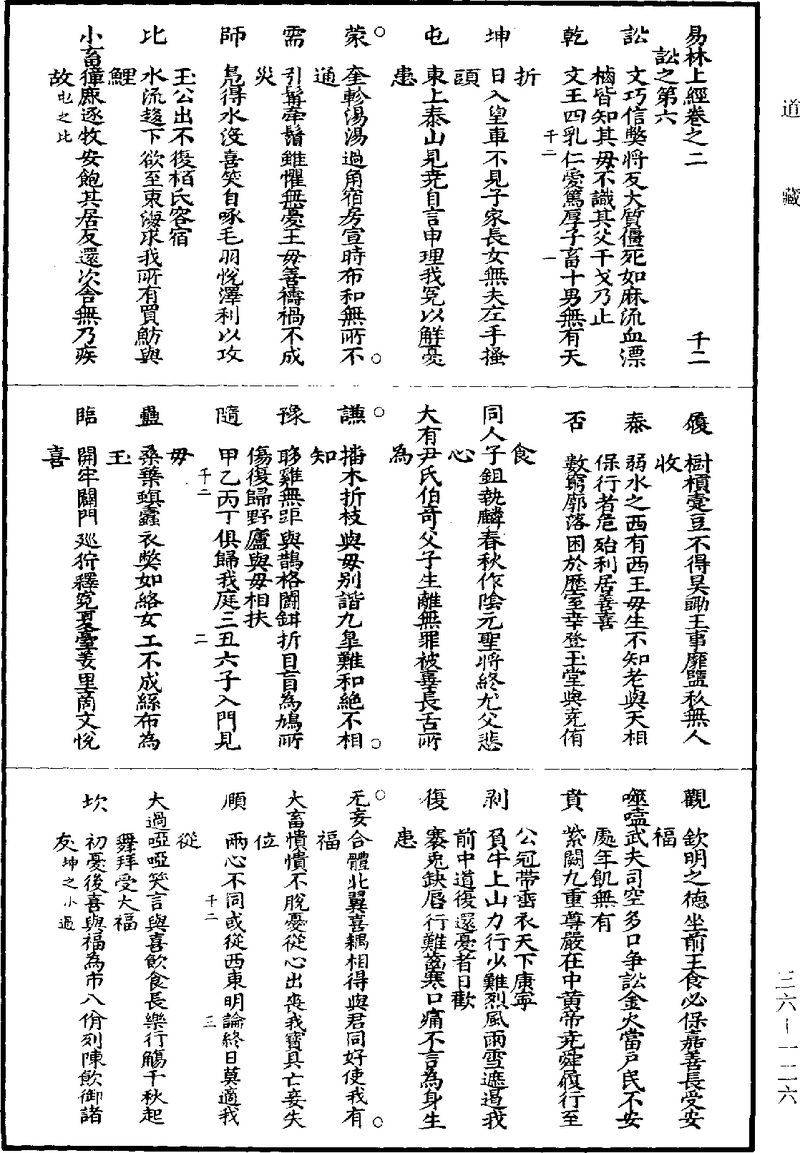 道藏
三六—一二六
易林上經卷之二 千二
訟之第六
訟 文巧信獘將反大質僵死如麻流血漂
櫓皆知其母不識其父干戈乃止
乾 文王四乳仁愛篤厚子畜十男無有夭
折
千二 一
坤 日入望車不見子家長女無夫左手搔
頭
屯 東上泰山見堯自言申理我冤以解憂
患
蒙 奎軫湯湯過角宿房宣時布和無所不
通
需 引髯牽鬚雖懼無憂王母善禱禍不成
災
師 鳧得水沒喜笑自啄毛羽悅澤利以攻
玉公出不復栢氏客宿
比 水流趨下欲至東海求我所有買魴與
鯉
小畜獐鹿逐牧安飽其居反還次舍無乃疾
故屯之比
履 樹櫝壹豆不得昊鋤王事靡盬秋無人
收
泰 弱水之西有西王母生不知老與天相
保行者危殆利居善喜
否 數窮廓落困於歷室幸登玉堂與堯侑
食
同人子鉏執麟春秋作陰元聖將終尤父悲
心
大有尹氏伯奇父子生離無罪被辜長舌所
為
謙 播木折枝與母別諧九皐難和絶不相
知
豫 眵雞無距與鵲格鬭鉺折目盲為鳩所
傷復歸野廬與母相扶
隨 甲乙丙丁俱歸我庭三丑六子入門見
母
千二 二
蠱 桑葉螟蠹衣獘如絡女工不成絲布為
玉
臨 開牢闢門巡狩釋寃夏臺羑里商文悅
喜
觀 欽明之德坐前玉食必保嘉善長受安
福
噬嗑武夫司空多口爭訟金火當戶民不安
處年飢無有
賁 紫闕九重尊嚴在中黃帝堯舜履行至
公冠帶垂衣天下康寧
剝 負牛上山力行少難烈風雨雪遮遏我
前中道復還憂者日歡
復 蹇兎缺唇行難齒寒口痛不言為身生
患
无妄合體北翼喜耦相得與君同好使我有
福
大畜憒憒不脫憂從心出喪我寶貝亡妾失
位
頤 兩心不同或從西東明論終日莫適我
從
千二 三
大過啞啞笑言與喜飲食長樂行觴千秋起
舞拜受大福
坎 初憂後喜與福為市八佾列陳飲御諸
友坤之小過